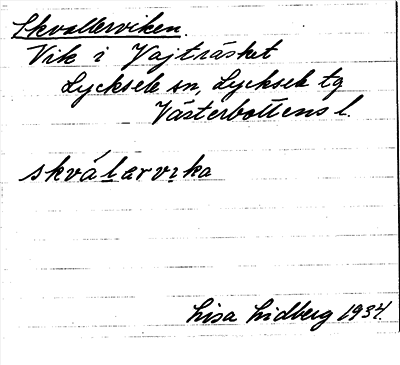 Skvallerviken.
Vik i Vajträsket
Lycksele sn, Lycksele tg
Västerbottens l.
skválarvika
Lisa Lidberg 1934.